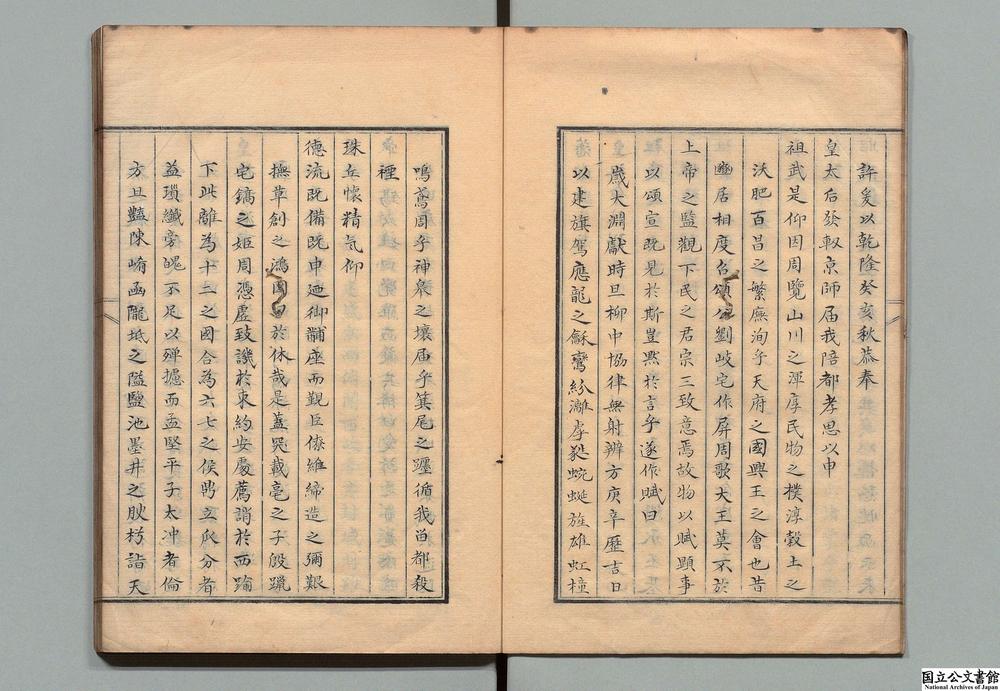 許爰以乾隆癸亥秋恭奉
皇太后發軔京師届我陪都孝思以申
祖武是仰因周覽山川之渾厚民物之樸淳穀土之
沃肥百昌之繁廡洵乎天府之國興王之會也昔
豳居相度召頌公劉岐宅作屏周歌大王莫不於
上帝之監觀下民之君宗三致意焉故物以賦顯事
以頌宣既見於斯豈黙於言乎遂作賦曰
歲大淵獻時旦柳中協律無射辨方庚辛歷吉日
以建旗駕應龍之蘇鸞紛灕孛㲋蜿蜒旌雄虹橦
鳴鳶周乎神皋之壤届乎箕尾之躔循我留都殺
禋
珠丘懷精氣仰
德流既備既申廼御黼座而覲臣僚維締造之彌艱
撫草創之鴻圖曰於休哉是蓋哭載亳之子殷躐
宅鎬之姬周憑虛致譏於東約安處薦誚於西踰
下此離為十二之國合為六七之侯鼎立瓜分者
益瑣纖旁魄不足以殫攄而孟堅平子太冲者倫
方且豔陳崤函隴坻之隘鹽池墨井之腴杇詣天
国立公文書館
National Archives of Japan